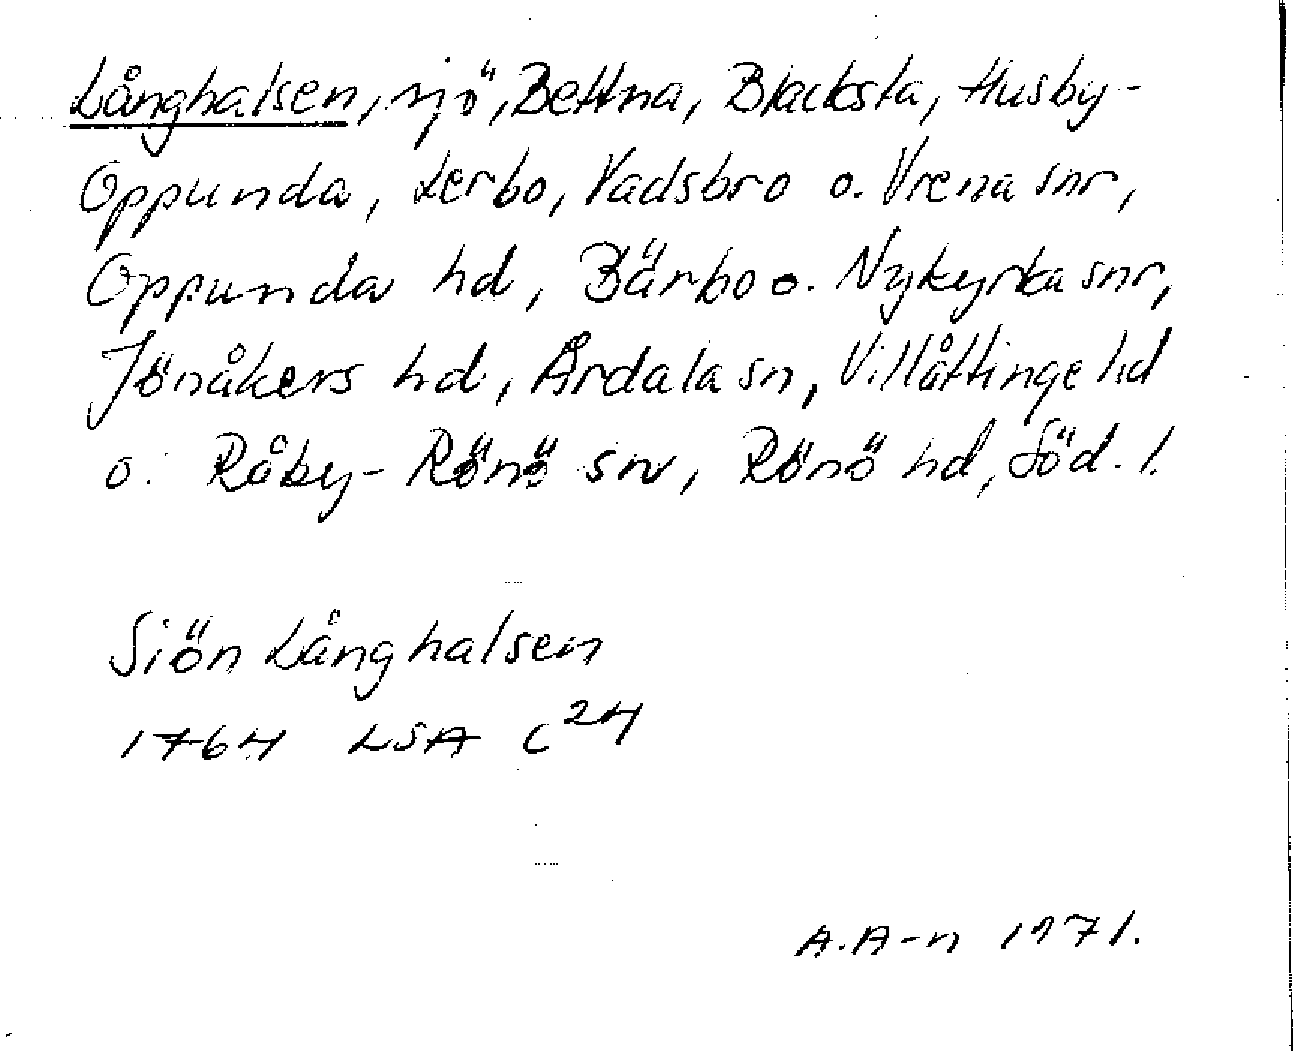 Långhalsen, sjö, Bettna, Blacksta, Husby-
Oppunda, Lerbo, Vadsbro o. Vrena snr,
Oppunda hd, Bärbo o. Nykyrka snr,
Jönåkers hd, Årdala sn, Villåttinge hd
o. Råby-Rönö sn, Rönö hd, Söd. l.
Siön Långhalsen
1764 LSA C²⁴
A.A-n 1971.